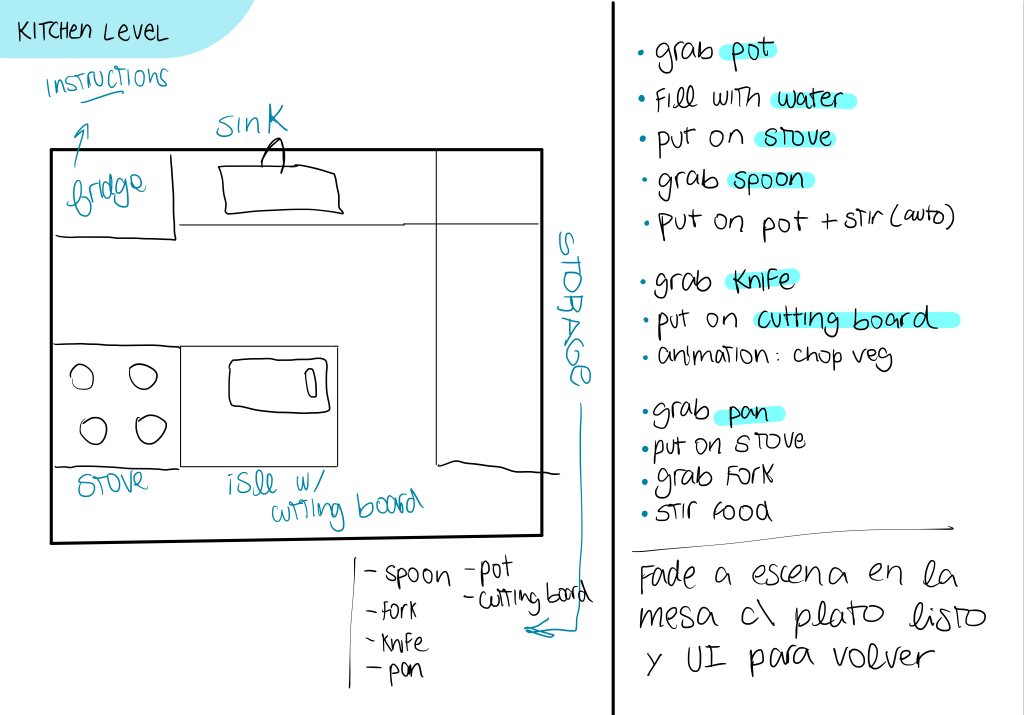 KITCHEN LEVEL
INSTRUCTIONS
SINK
fridge
STORAGE
STOVE
isle w/
cutting board
- spoon
- fork
- knife
- pan
- pot
- cutting board
• grab pot
• Fill with water
• put on stove
• grab spoon
• put on pot + stir (auto)
• grab Knife
• put on cutting board
• animation: chop veg
• grab pan
• put on stove
• grab Fork
• stir Food
Fade a escena en la
mesa c\ plato listo
y UI para volver